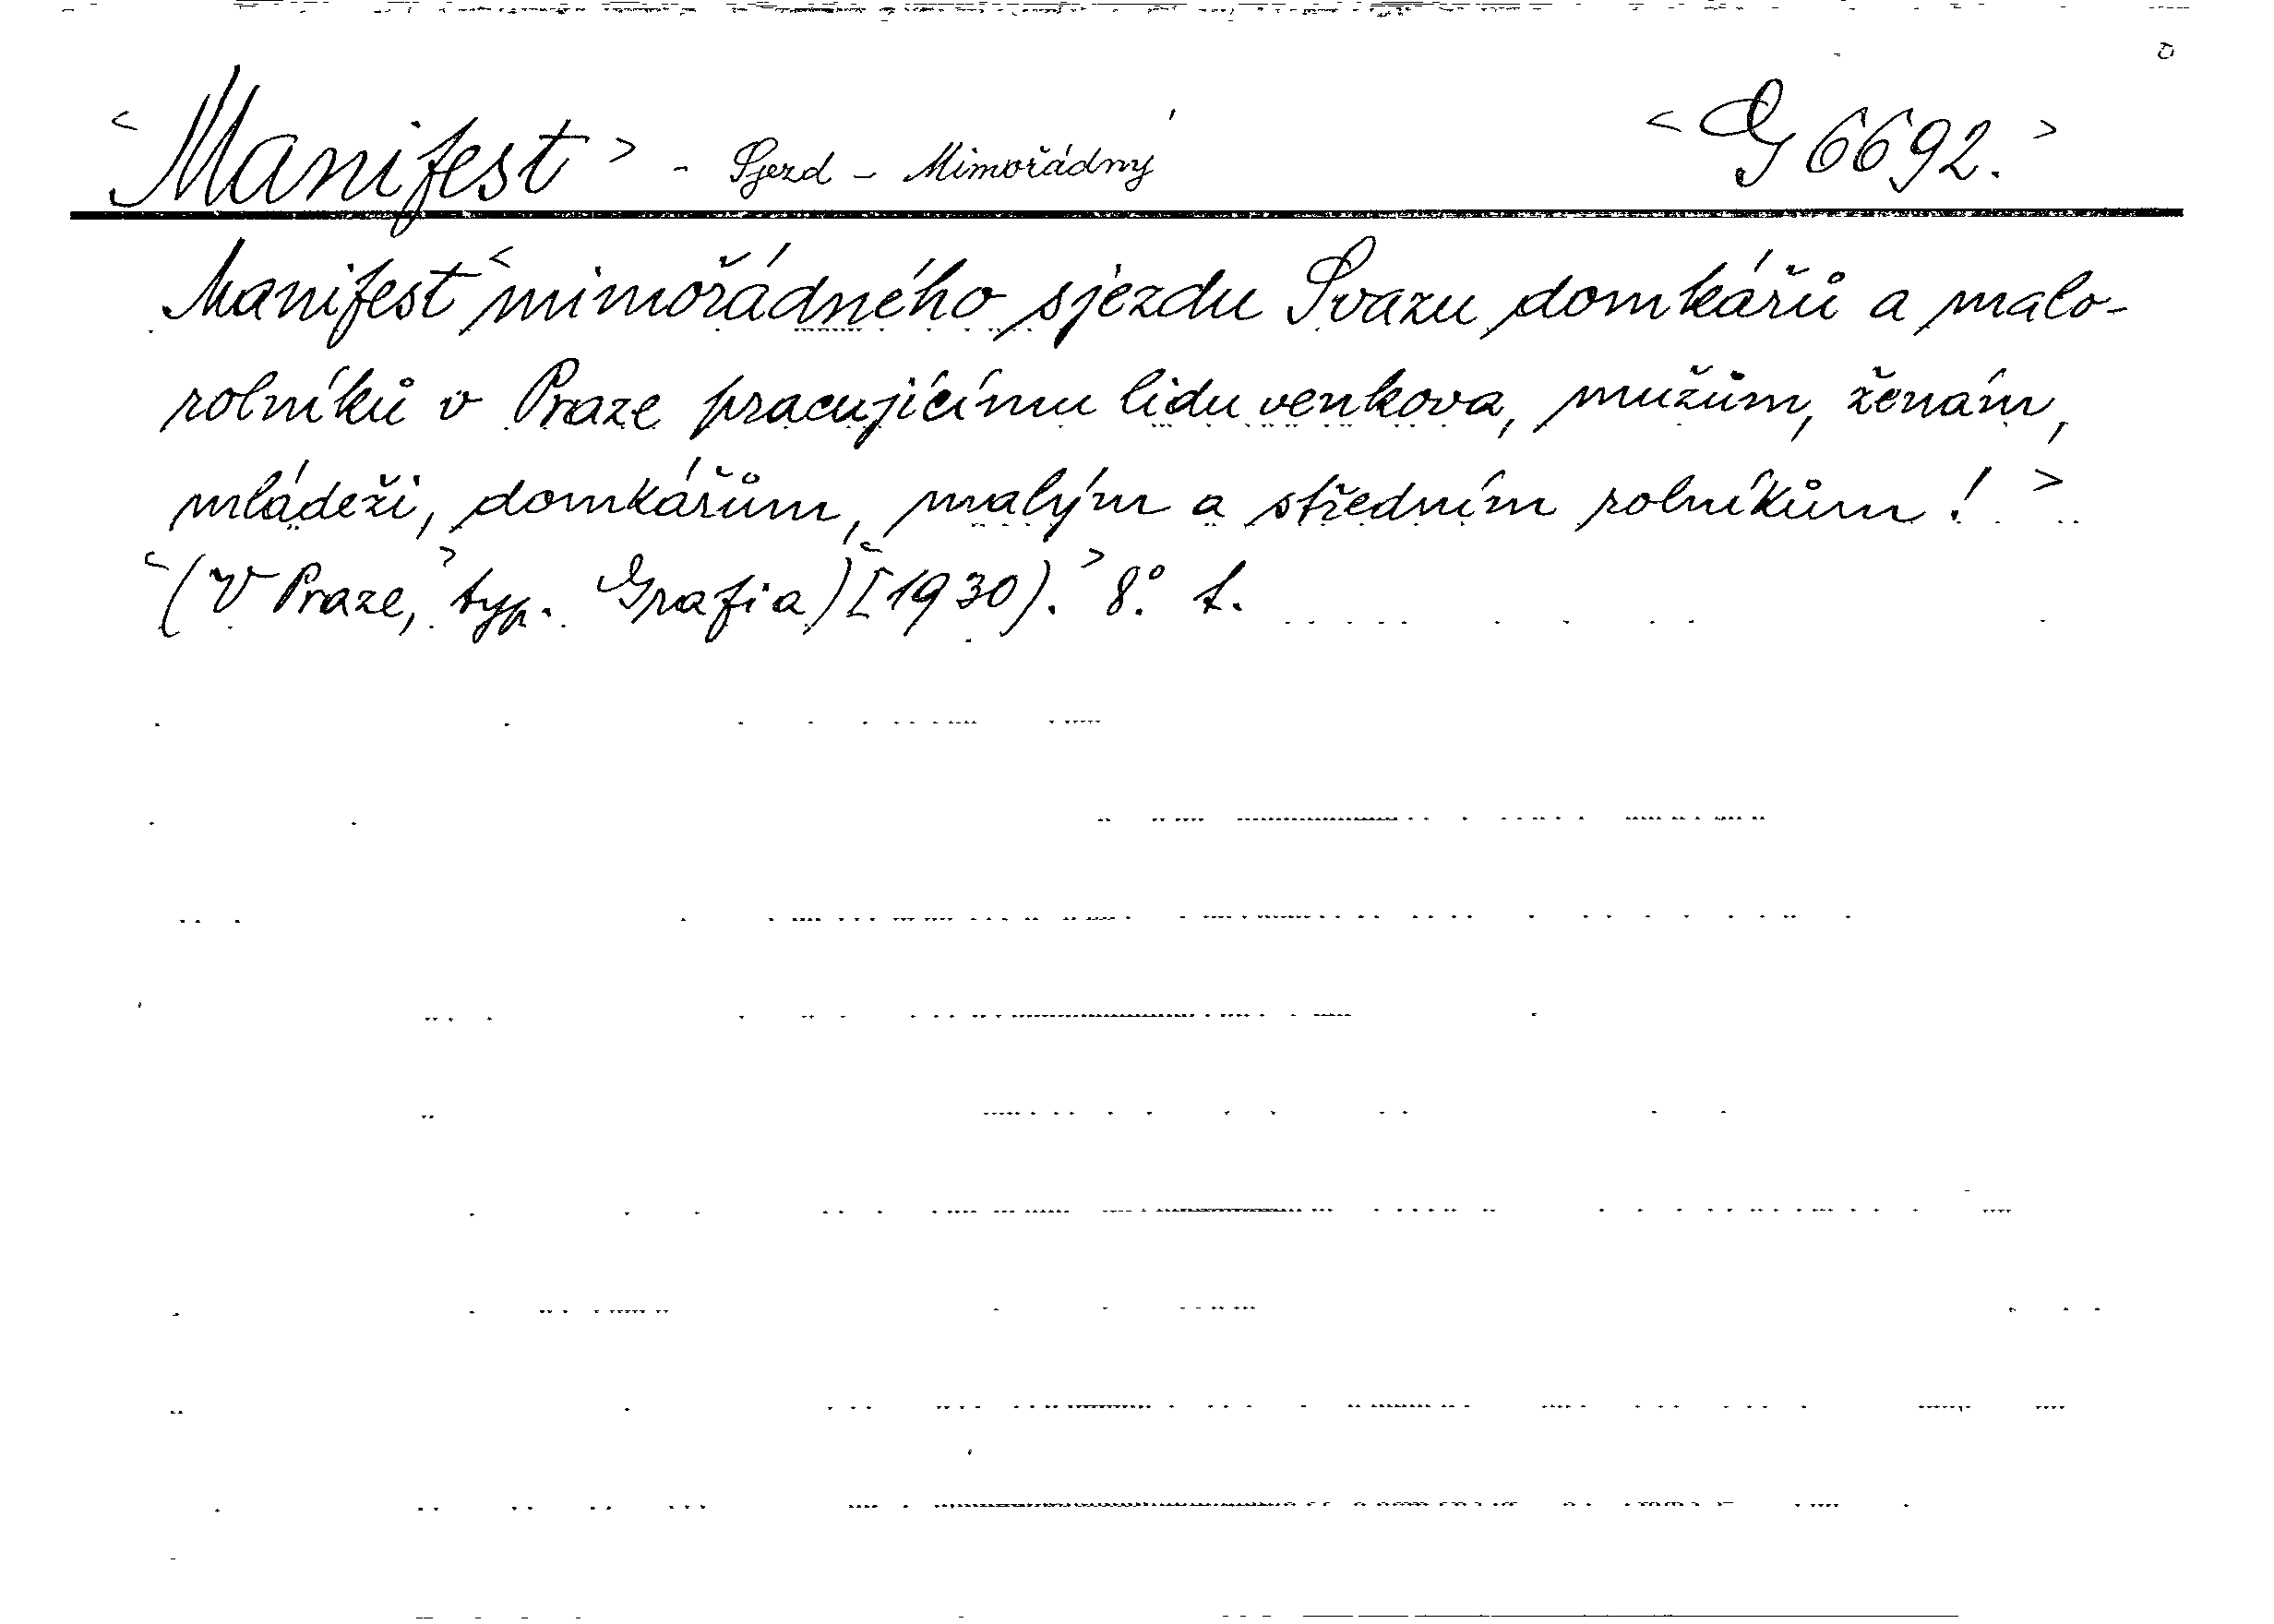 <Manifest> - Sjezd - Mimořádný <G 6692.>
Manifest <mimořádného sjezdu Svazu domkářů a malo-
rolníků v Praze pracujícímu lidu venkova, mužům, ženám,
mládeži, domkářům, malým a středním rolníkům! >
<(V Praze,> typ. Grafia) <[1930).> 8°. 1.